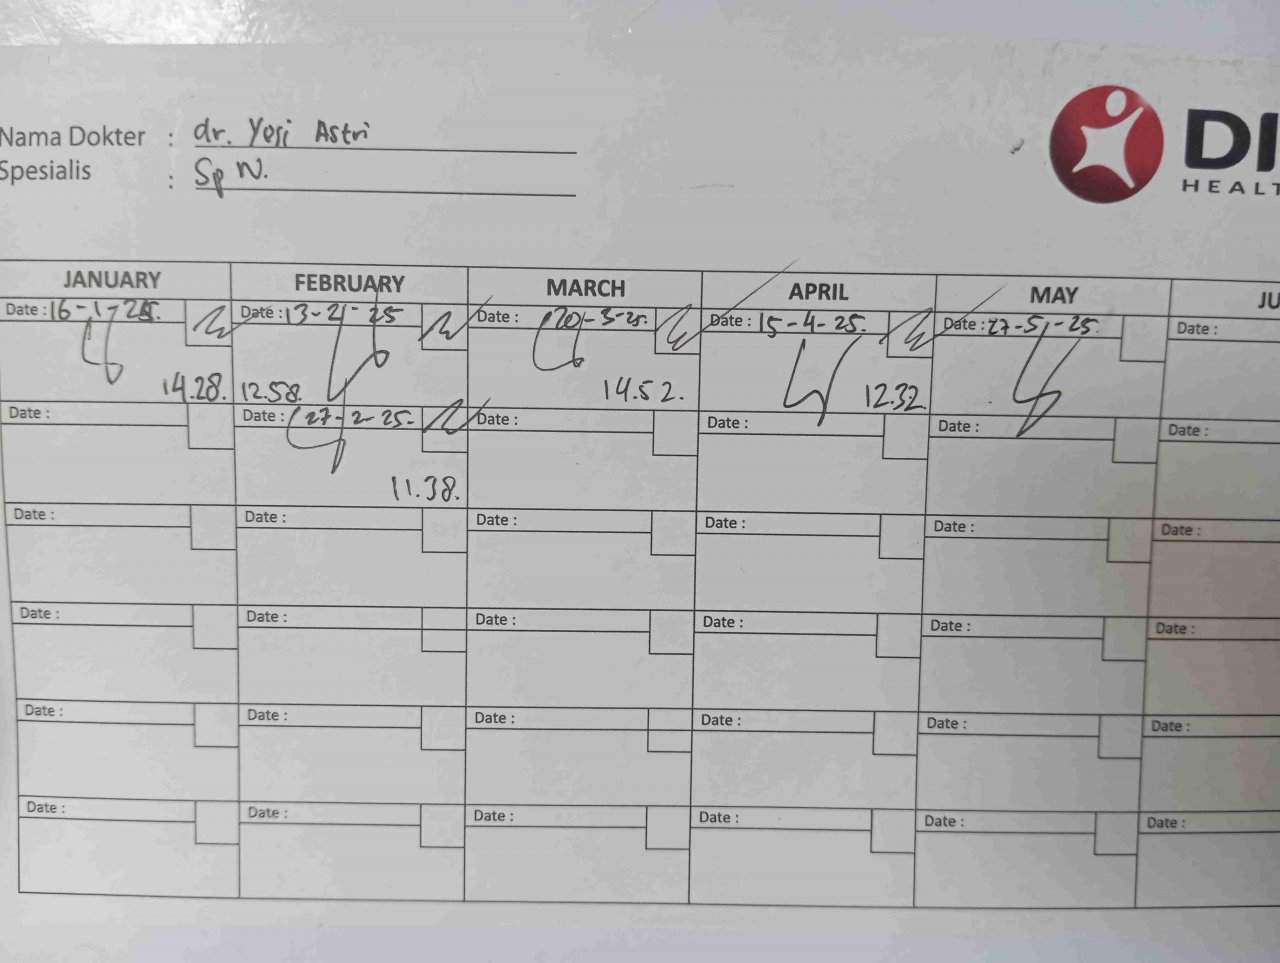 Nama Dokter : dr. Yosi Astri
Spesialis : Sp N.
DI
HEALT
JANUARY FEBRUARY MARCH APRIL MAY JU
Date : 16-1-25. Date : 13-2-25 Date : 20-3-25. Date : 15-4-25. Date : 27-5-25. Date :
14.28. 12.58. 14.52. 12.32
Date : Date : 27-2-25- Date : Date : Date : Date :
11.38.
Date : Date : Date : Date : Date : Date :
Date : Date : Date : Date : Date : Date :
Date : Date : Date : Date : Date : Date :
Date : Date : Date : Date : Date : Date :